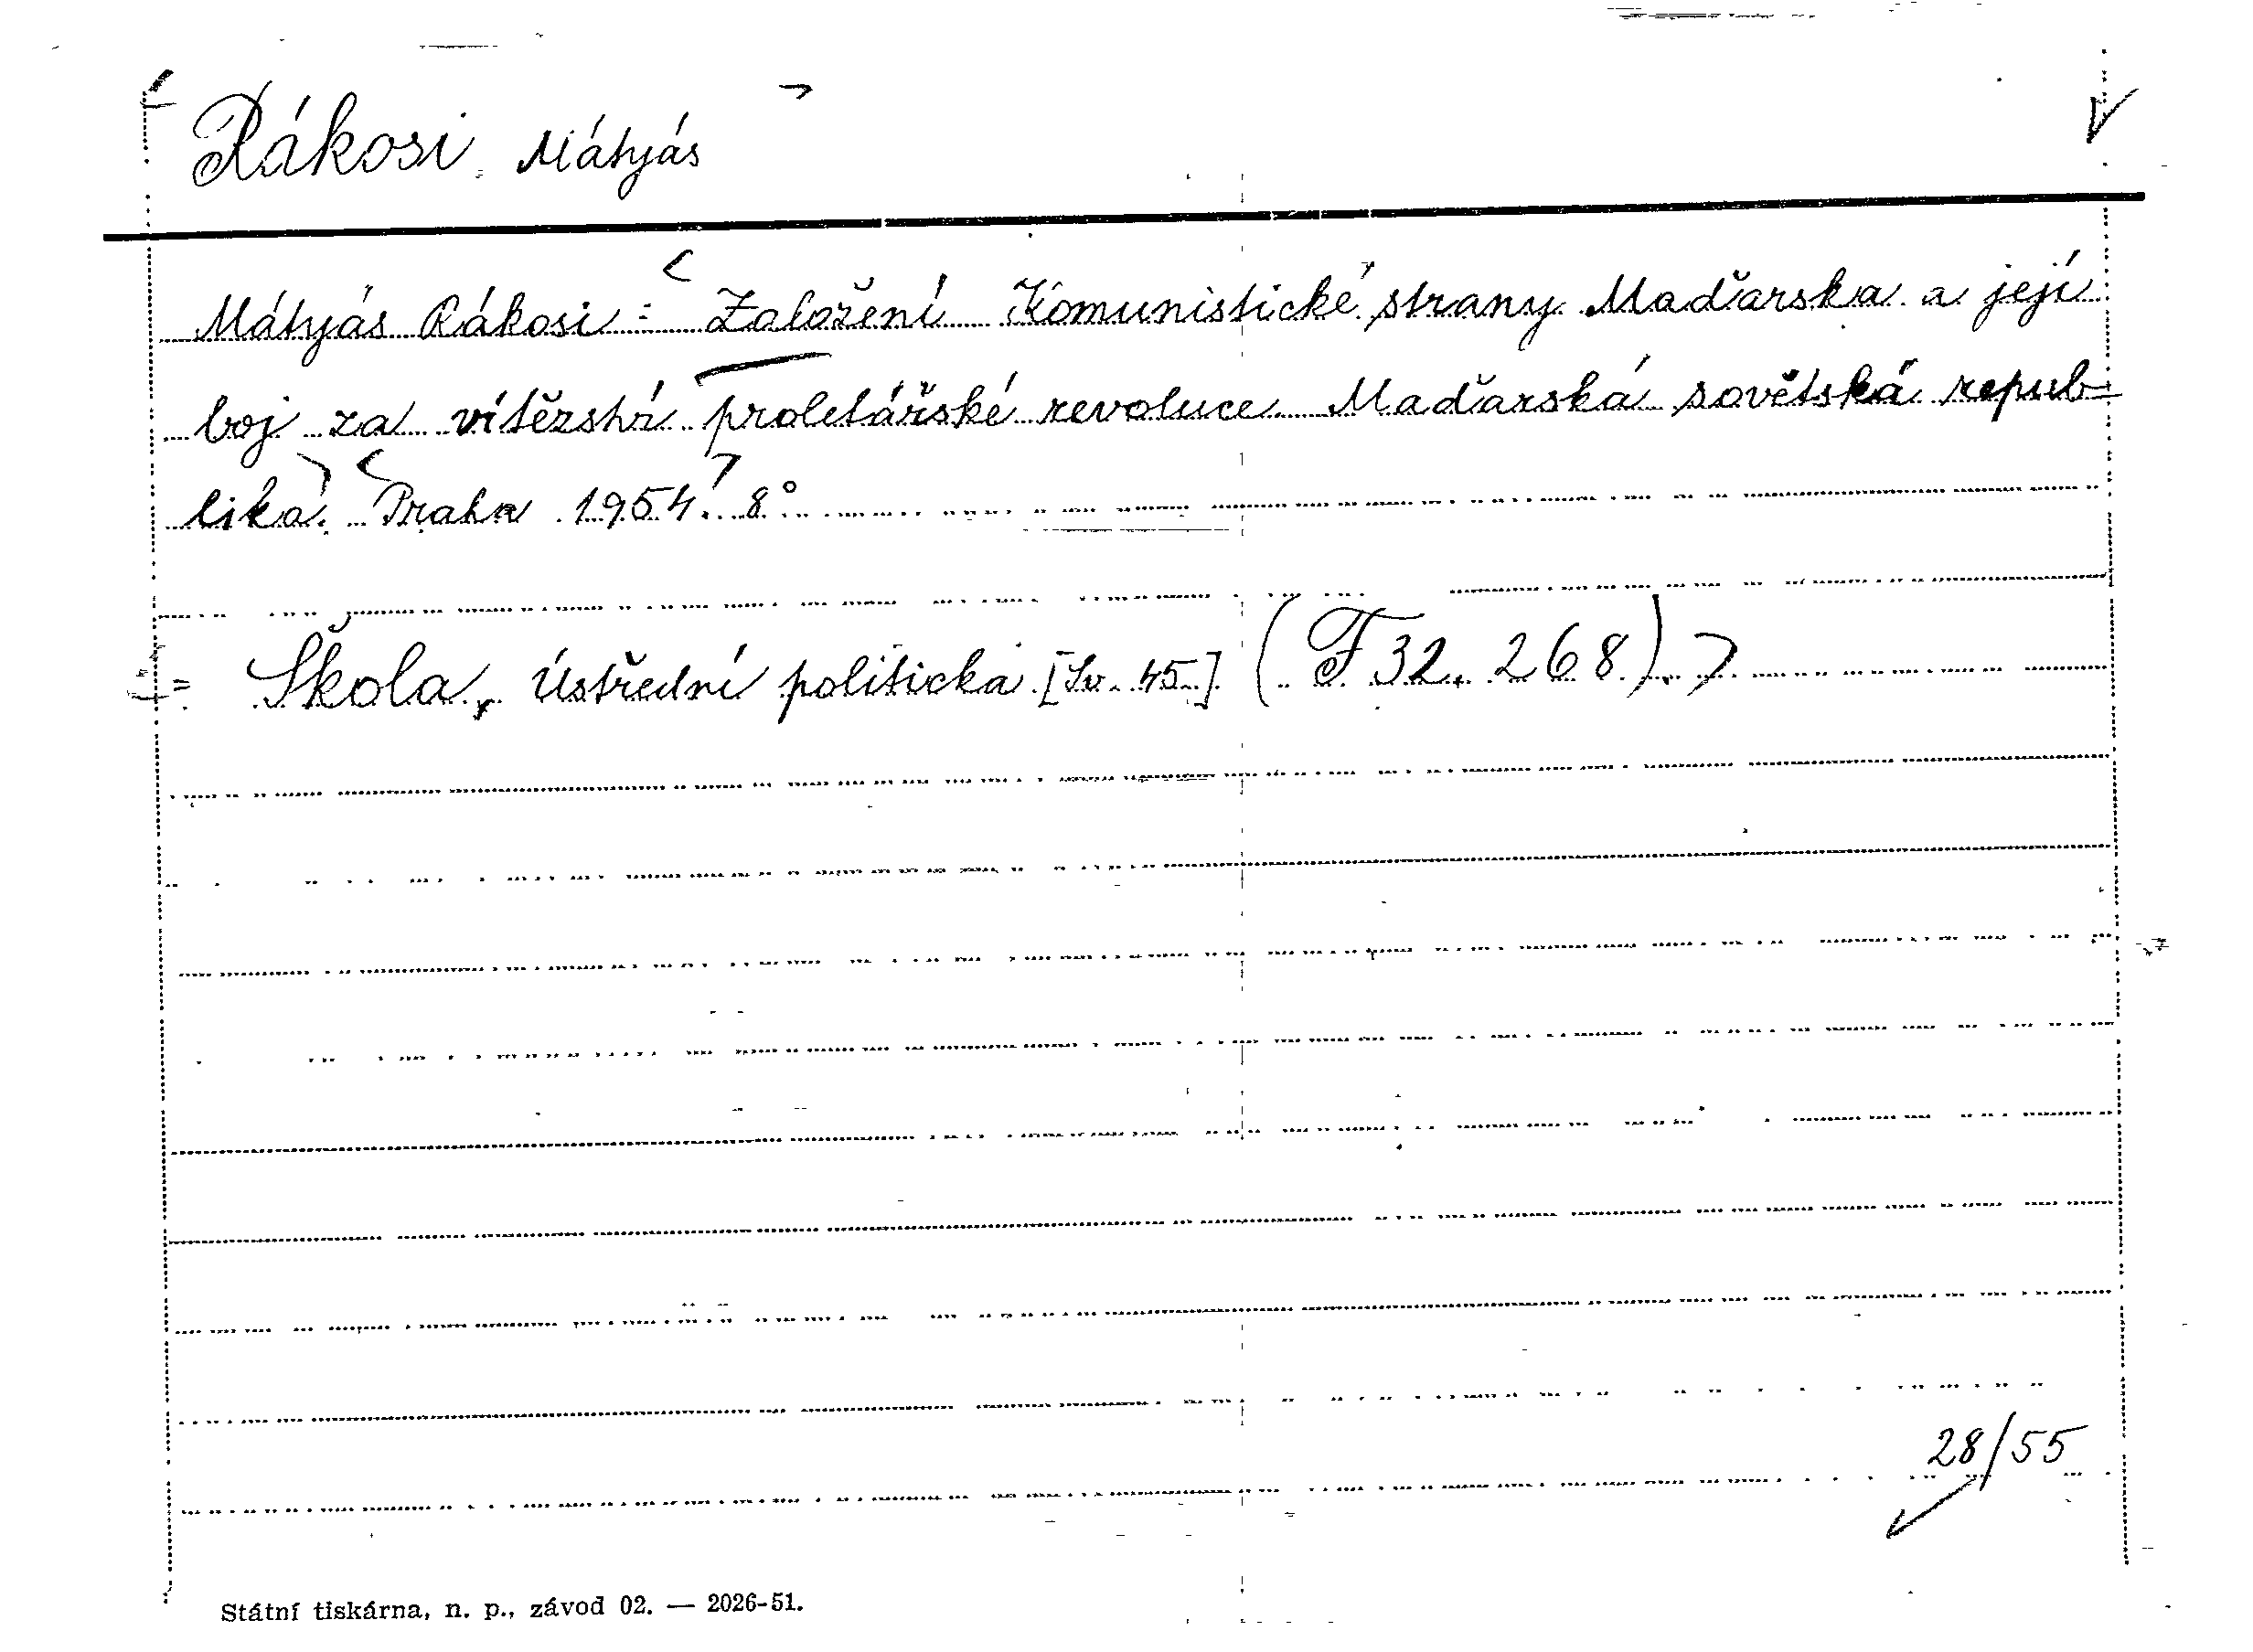 Rákosi, Mátyás
Mátyás Rákosi: Založení Komunistické strany Maďarska a její
boj za vítězství proletářské revoluce. Maďarská sovětská repub-
lika. Praha 1954. 8°.
= Škola, Ústřední politická [Sv. 45.] (F 32.268).
28/55
Státní tiskárna, n. p., závod 02. — 2026-51.